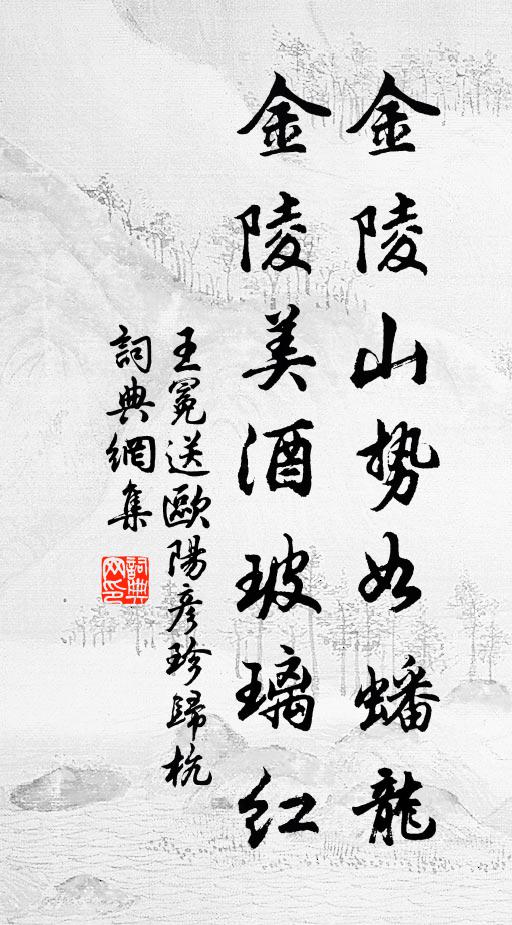 金陵山势如蟠龍
金陵美酒玻璃红
王冕送歐陽彦珍歸杭
詞典網集
詞典网印